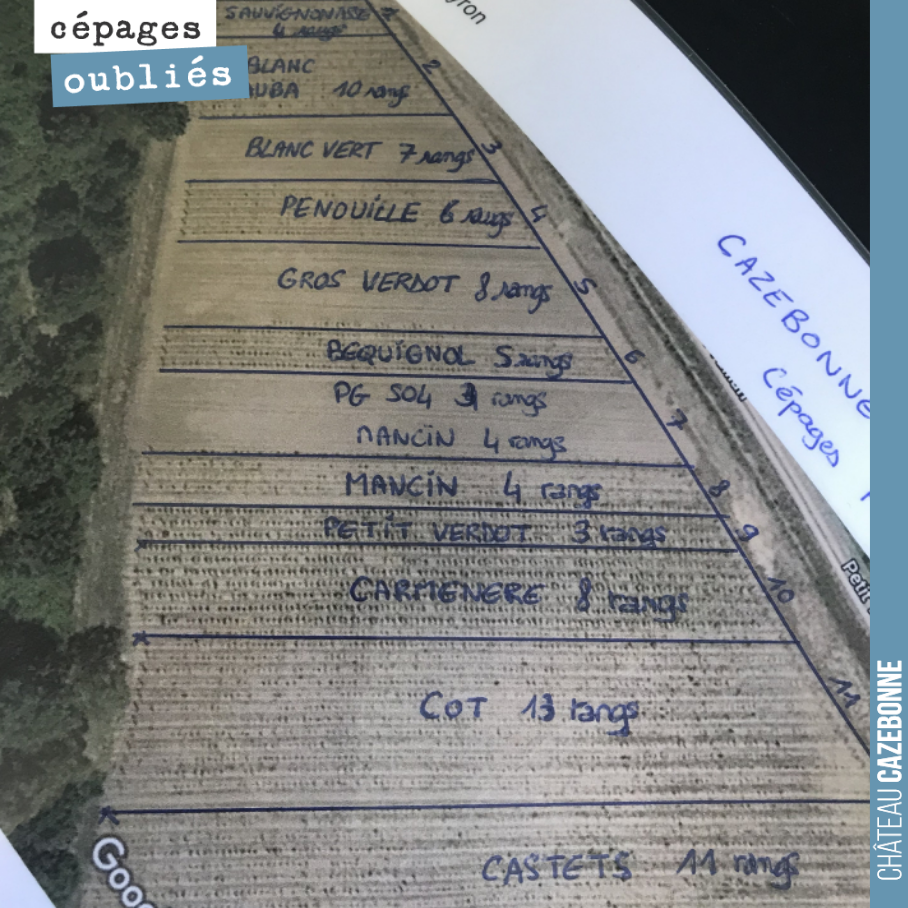 cépages
oubliés
SAUVIGNONASE
4 rangs
BLANC
AUBA 10 rangs
BLANC VERT 7 rangs
PENOUILLE 6 rangs
GROS VERDOT 8 rangs
BEQUIGNOL 5 rangs
PG SO4 3 rangs
MANCIN 4 rangs
MANCIN 4 rangs
PETIT VERDOT 3 rangs
CARMENERE 8 rangs
COT 13 rangs
CASTETS 11 rangs
1
2
3
4
5
6
7
8
9
10
11
yron
CAZEBONNE
cépages
Petit
Goo
CHÂTEAU CAZEBONNE